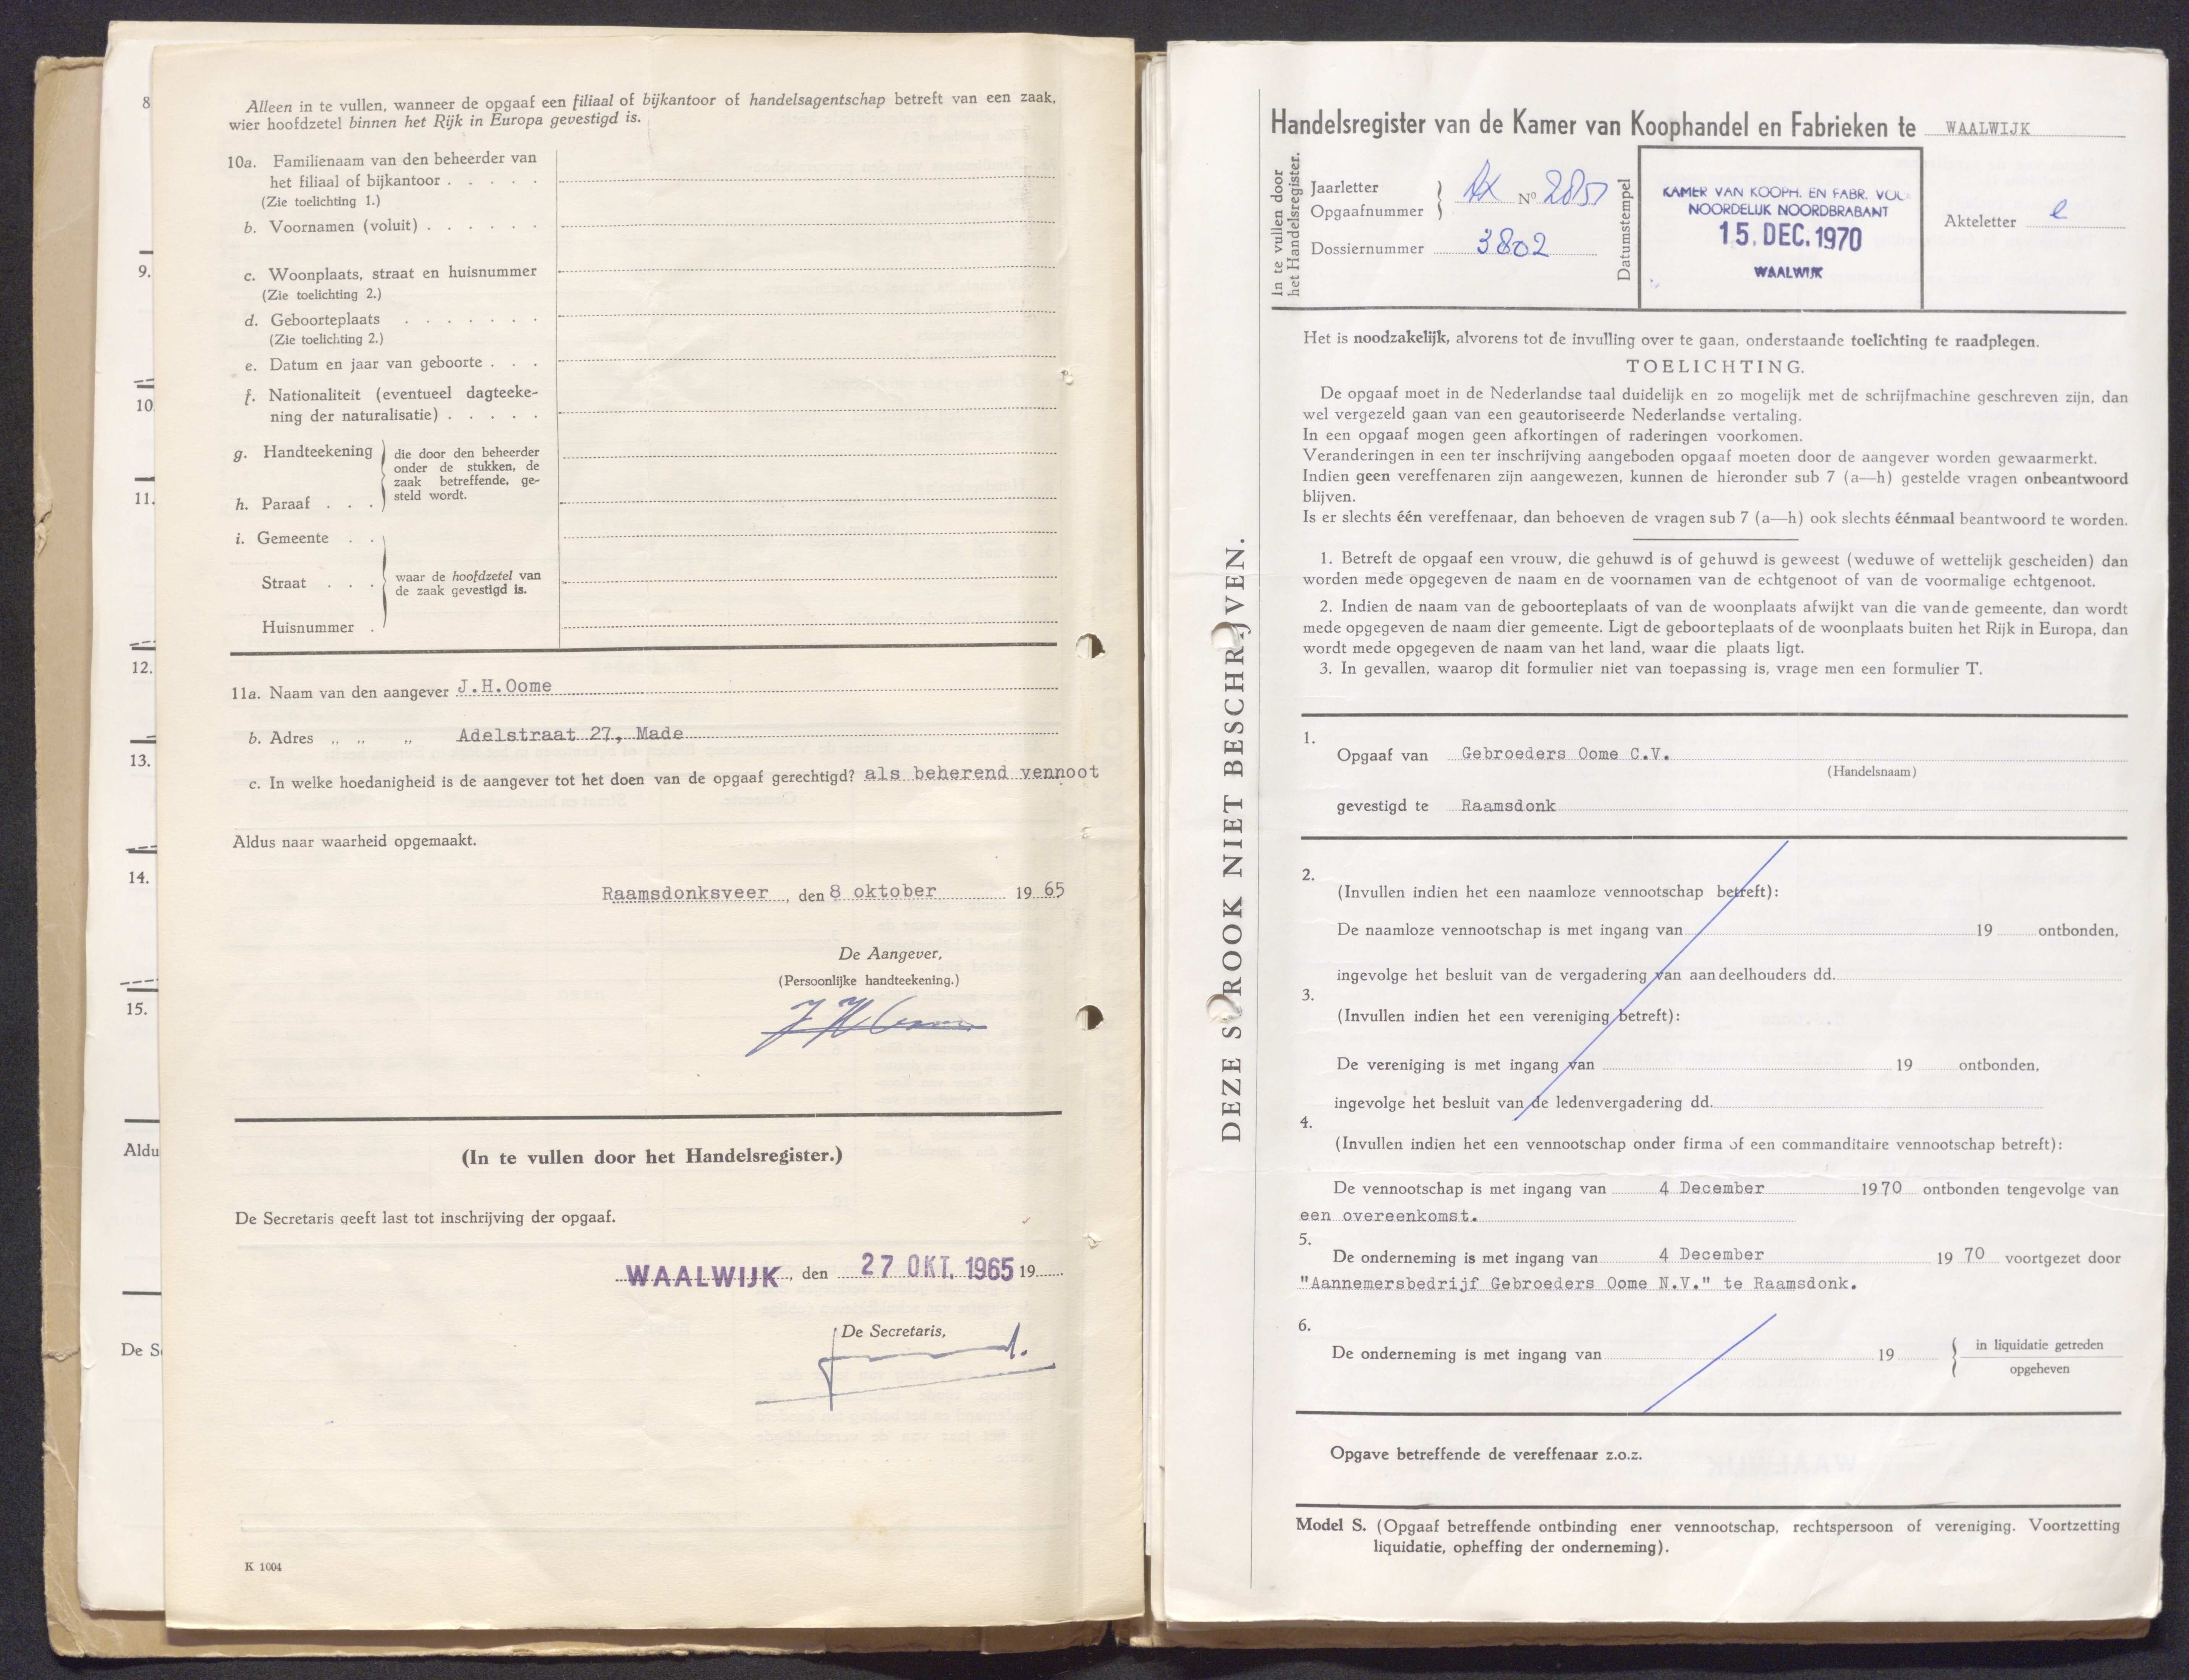 Alleen in te vullen, wanneer de opgaaf een filiaal of bijkantoor of handelsagentschap betreft van een zaak,
wier hoofdzetel binnen het Rijk in Europa gevestigd is.
10a. Familienaam van den beheerder van
het filiaal of bijkantoor . . . . .
(Zie toelichting 1.)
b. Voornamen (voluit) . . . . . .
c. Woonplaats, straat en huisnummer
(Zie toelichting 2.)
d. Geboorteplaats . . . . . . .
(Zie toelichting 2.)
e. Datum en jaar van geboorte . . .
f. Nationaliteit (eventueel dagteeke-
ning der naturalisatie) . . . . .
g. Handteekening
h. Paraaf . . .
die door den beheerder
onder de stukken, de
zaak betreffende, ge-
steld wordt.
i. Gemeente . .
Straat . . .
Huisnummer .
waar de hoofdzetel van
de zaak gevestigd is.
11a. Naam van den aangever J.H.Oome
b. Adres „ „ „ Adelstraat 27, Made
c. In welke hoedanigheid is de aangever tot het doen van de opgaaf gerechtigd? als beherend vennoot
Aldus naar waarheid opgemaakt.
Raamsdonksveer, den 8 oktober 1965
De Aangever,
(Persoonlijke handteekening.)
(In te vullen door het Handelsregister.)
De Secretaris geeft last tot inschrijving der opgaaf.
WAALWIJK, den 27 OKT. 1965 19
De Secretaris,
K 1004
8
9.
10
11.
12.
13.
14.
15.
Aldu
De S
Handelsregister van de Kamer van Koophandel en Fabrieken te WAALWIJK
In te vullen door
het Handelsregister.
Jaarletter
Opgaafnummer
Nº
Dossiernummer 3802
Datumstempel
KAMER VAN KOOPH. EN FABR. VOO
NOORDELIJK NOORDBRABANT
15. DEC. 1970
WAALWIJK
Akteletter e
Het is noodzakelijk, alvorens tot de invulling over te gaan, onderstaande toelichting te raadplegen.
TOELICHTING.
De opgaaf moet in de Nederlandse taal duidelijk en zo mogelijk met de schrijfmachine geschreven zijn, dan
wel vergezeld gaan van een geautoriseerde Nederlandse vertaling.
In een opgaaf mogen geen afkortingen of raderingen voorkomen.
Veranderingen in een ter inschrijving aangeboden opgaaf moeten door de aangever worden gewaarmerkt.
Indien geen vereffenaren zijn aangewezen, kunnen de hieronder sub 7 (a—h) gestelde vragen onbeantwoord
blijven.
Is er slechts één vereffenaar, dan behoeven de vragen sub 7 (a—h) ook slechts éénmaal beantwoord te worden.
1. Betreft de opgaaf een vrouw, die gehuwd is of gehuwd is geweest (weduwe of wettelijk gescheiden) dan
worden mede opgegeven de naam en de voornamen van de echtgenoot of van de voormalige echtgenoot.
2. Indien de naam van de geboorteplaats of van de woonplaats afwijkt van die van de gemeente, dan wordt
mede opgegeven de naam dier gemeente. Ligt de geboorteplaats of de woonplaats buiten het Rijk in Europa, dan
wordt mede opgegeven de naam van het land, waar die plaats ligt.
3. In gevallen, waarop dit formulier niet van toepassing is, vrage men een formulier T.
DEZE STROOK NIET BESCHRIJVEN.
1.
Opgaaf van Gebroeders Oome C.V.
(Handelsnaam)
gevestigd te Raamsdonk
2.
(Invullen indien het een naamloze vennootschap betreft):
De naamloze vennootschap is met ingang van 19 ontbonden,
ingevolge het besluit van de vergadering van aandeelhouders dd.
3.
(Invullen indien het een vereniging betreft):
De vereniging is met ingang van 19 ontbonden,
ingevolge het besluit van de ledenvergadering dd.
4.
(Invullen indien het een vennootschap onder firma of een commanditaire vennootschap betreft):
De vennootschap is met ingang van 4 December 1970 ontbonden tengevolge van
een overeenkomst.
5.
De onderneming is met ingang van 4 December 19 70 voortgezet door
"Aannemersbedrijf Gebroeders Oome N.V." te Raamsdonk.
6.
De onderneming is met ingang van 19
in liquidatie getreden
opgeheven
Opgave betreffende de vereffenaar z.o.z.
Model S. (Opgaaf betreffende ontbinding ener vennootschap, rechtspersoon of vereniging. Voortzetting
liquidatie, opheffing der onderneming).